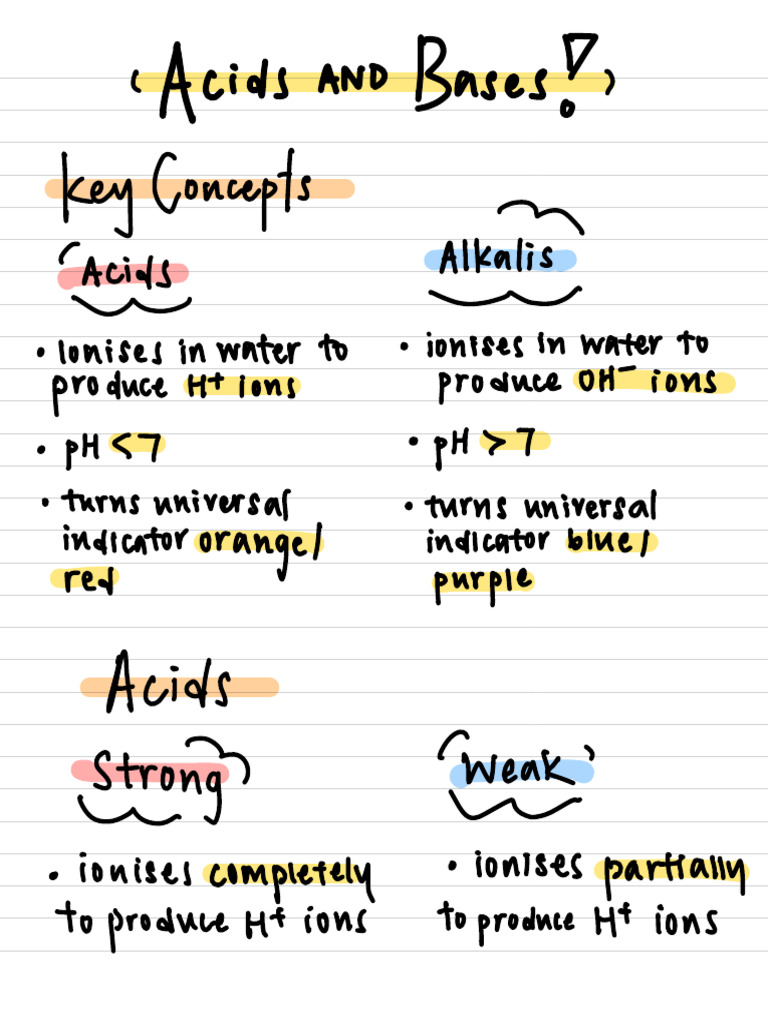 Acids AND Bases!
Key Concepts
Acids
• Ionises in water to
produce H⁺ ions
• pH < 7
• turns universal
indicator orange/
red
Alkalis
• ionises in water to
produce OH⁻ ions
• pH > 7
• turns universal
indicator blue/
purple
Acids
Strong
• ionises completely
to produce H⁺ ions
Weak
• ionises partially
to produce H⁺ ions